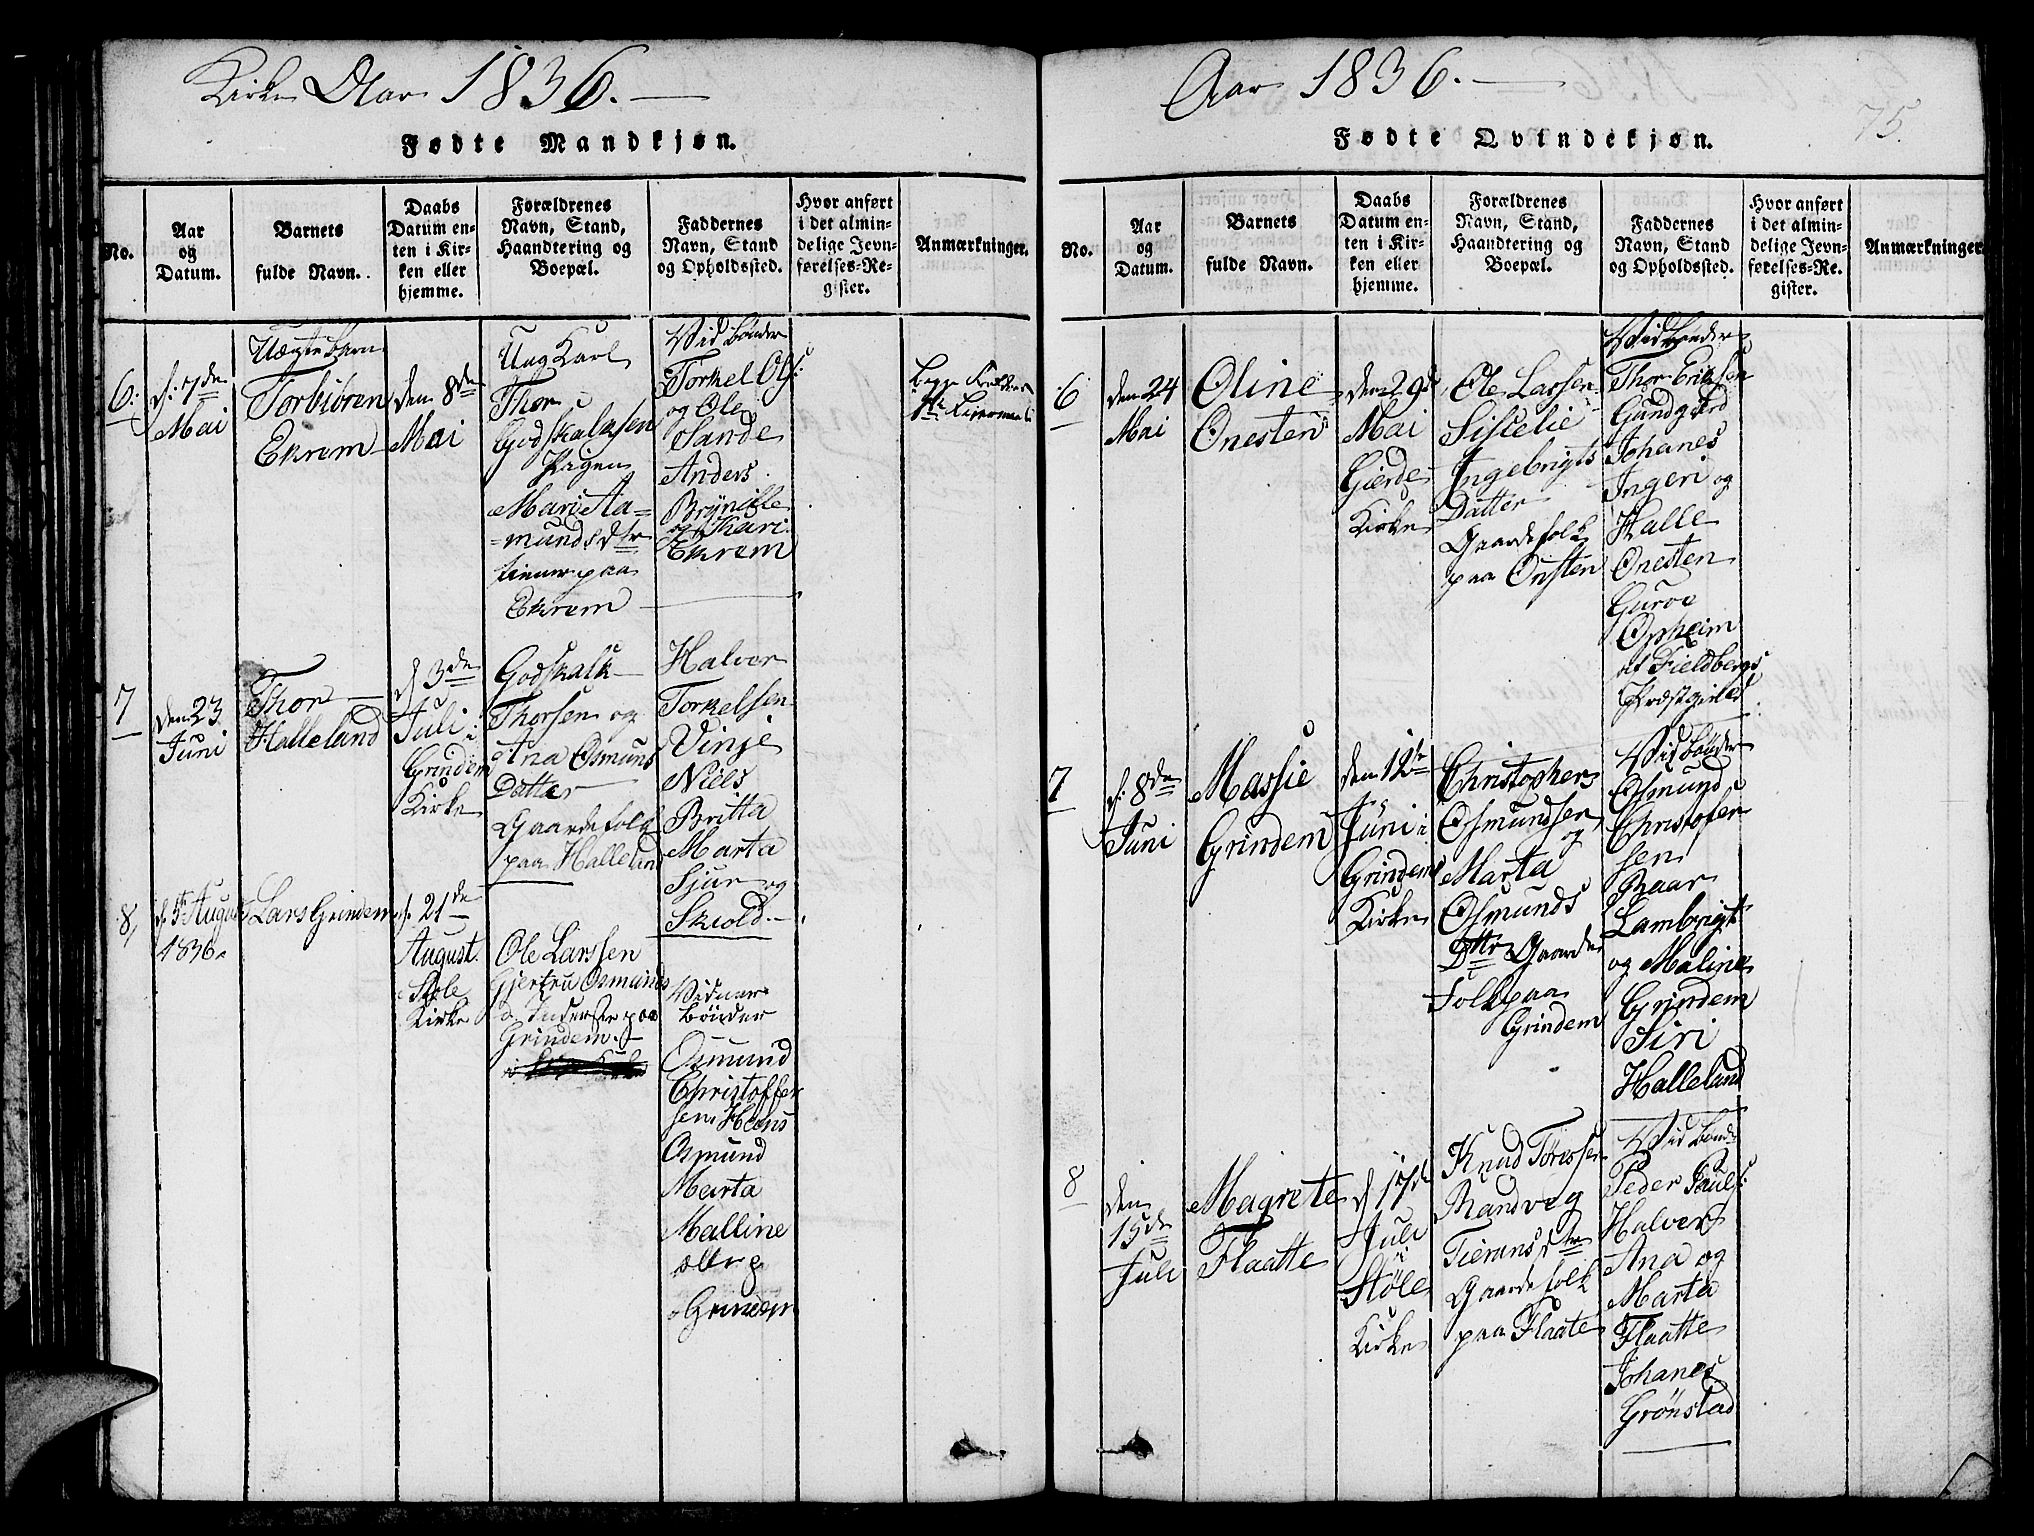 Kirke Aar 1836.
Fødte Mandkjøn.
No.
Aar
og
Datum.
Barnets
fulde Navn.
Daabs
Datum en-
ten i Kir-
ken eller
hjemme.
Forældrenes
Navn, Stand,
Haandtering og
Boepæl.
Faddernes
Navn, Stand
og Opholdssted.
Hvor anført
i det almin-
delige Jevn-
førelses-Re-
gister.
Anmærkninger.
6:
d: 7de
Mai
Uægte barn
Torbiøren
Ekrem
den 8de
Mai
Ung Karl
Thor
Godskalksen
Hagen
Mari Aa=
=mundsdtr
tiener paa
Ekrem
Vid bønder
Torkel Ols:
og Ole
Sande
Anders
Brynille
og Kari
Ekrem
begge
7
den 23
Juni
Thor
Halleland
d 3de
Juli i
Grindem
Kirke
Godskalk
Thorsen og
Ana Osmuns
Datter
Gaardefolk
paa Hallelan
Halver
Torkelsen
Vinje
Niels
Britta
Marta
Sjur og
Skiold
8,
d. 5 August
1836
Lars Grindem
d. 21de
August
Støle
Kirke
Ole Larssen
Gjertru Osmunds
Inderste paa
Grindem
Vidner
bønder
Osmund
Christoffer
sen Hans
Osmund
Marta
Malline
alle p
Grindem
Aar 1836.
75.
Fødte Qvindekjøn.
No.
Aar
og
Datum.
Barnets
fulde Navn.
Daabs
Datum en-
ten i Kir-
ken eller
hjemme.
Forældrenes
Navn, Stand,
Haandtering og
Boepæl.
Faddernes
Navn, Stand
og Opholdssted.
Hvor anført
i det almin-
delige Jevn-
førelses-Re-
gister.
Anmærkninger
6
den 24
Mai
Oline
Onesten
den 29de
Mai
Gierde
Kirke
Ole Larsen
Siscelie
Ingebrigts
Datter
Gaardefolk
paa Onsten
Vid bønder
Thor Eriksen
Gundgierd
Johanes
Ingeri og
Halle
Onesten
Guroe
Opheim
af Fieldbergs
Præstgield
7
d: 8de
Juni
Massie
Grindem
den 12te
Juni i
Grindem
Kirke
Christopher
Osmundsen
og
Marta
Osmunds
Dttr Gaarde
Folk paa
Grindem
Vid bønder
Osmund
Christofer
sen
Baar
Lambrigt
og Maline
Grindem
Siri
Halleland
8
den
15de
Juli
Magrete
Flaatte
d 17de
Juli
i
Støle
Kirke
Knud Tørissen
Randveg
Tieransdtr
Gaardefolk
paa Flaate
Vid bønd
Peder Pauls:
Halver
Ana og
Marta
Flaatte
Johanes
Grønstad